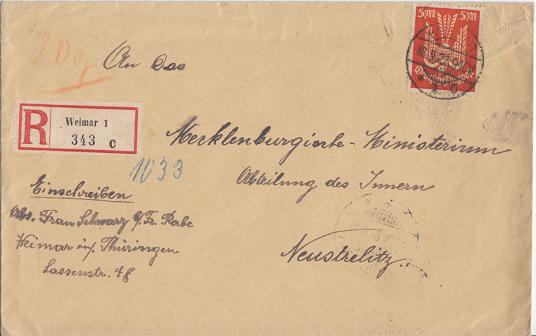 5M 5M
Deutsche Flugpost
20g
An das
R Weimar 1
343 c
Mecklenburgische-Ministerium
1033
Abteilung des Innern
Einschreiben
Abs. Frau Schwarz b/Fr. Rabe
Weimar i/Thüringen
Lassenstr. 48
Neustrelitz.